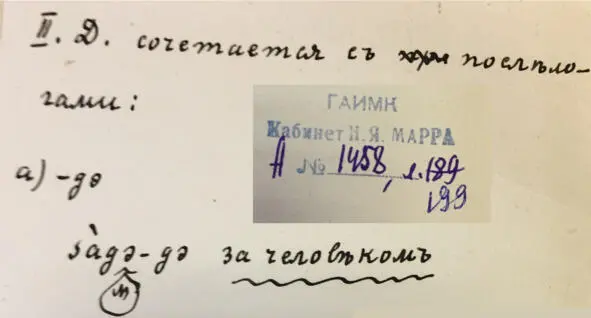 II. Д. сочетается съ послѣло-
гами:
ГАИМК
Кабинет Н. Я. МАРРА
А № 1458, л. 189
199
а) -дә
за человѣкомъ